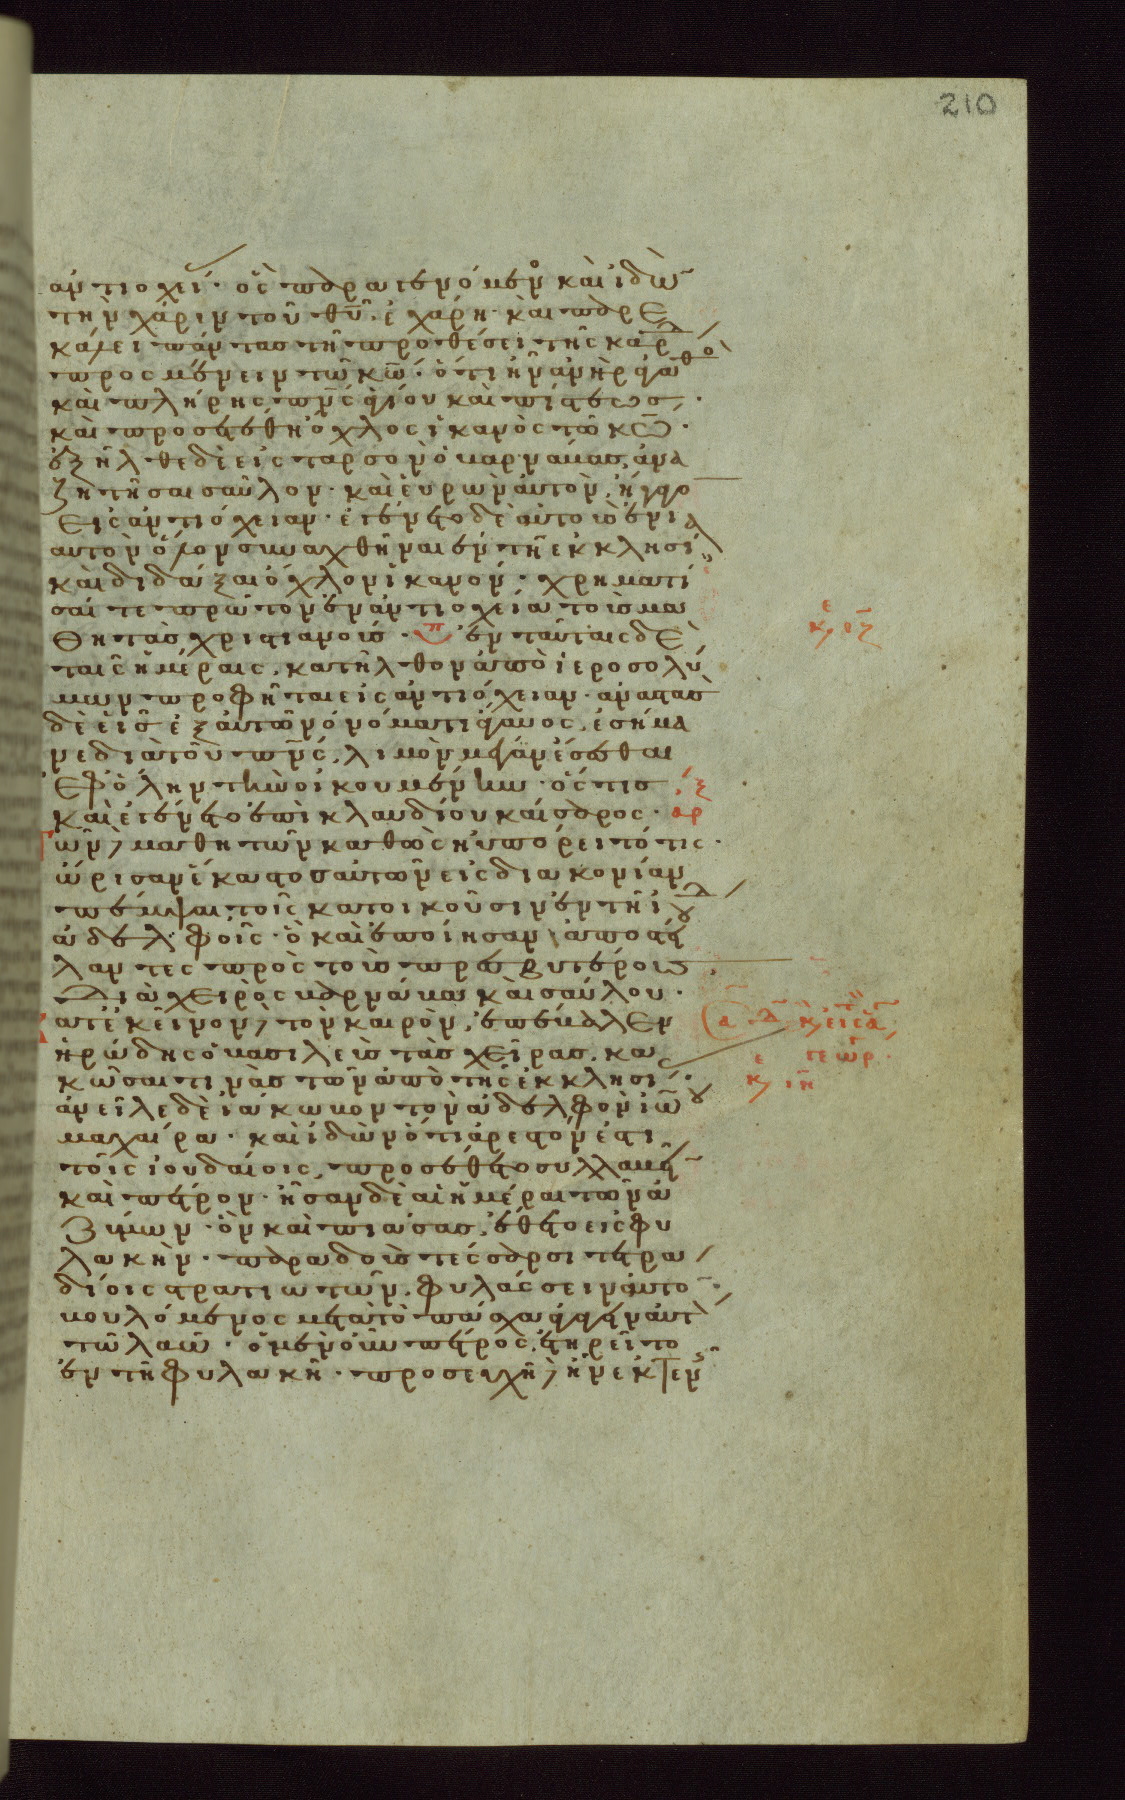 210
ἀντιοχεί· ὃς παραγενόμενος καὶ ἰδὼν
τὴν χάριν τοῦ θυ, ἐχάρη· καὶ παρε
κάλει πάντας τῇ προθέσει τῆς καρδ
προσμένειν τῶ κω· ὅτι ἦν ἀνὴρ ἀγαθὸ
καὶ πλήρης πνς ἁγίου καὶ πίστεως·
καὶ προσετέθη ὄχλος ἱκανὸς τῶ κω·
ἐξῆλθε δὲ εἰς ταρσὸν ὁ βαρνάβας ἀνα
ζητῆσαι σαῦλον· καὶ εὑρὼν αὐτὸν, ἤγαγ
εἰς ἀντιόχειαν· ἐγένετο δὲ αὐτοὺς ἐνι
αυτὸν ὅλον συναχθῆναι ἐν τῇ ἐκκλησί
καὶ διδάξαι ὄχλον ἱκανόν· χρηματί
σαι τε πρῶτον ἐν ἀντιοχεία τοὺς μα
θητὰς χριστιανούς· ἐν ταύταις δὲ
ταῖς ἡμέραις, κατῆλθον ἀπὸ ἱεροσολύ
μων προφῆται εἰς ἀντιόχειαν· ἀναστὰς
δὲ εἷς ἐξ αὐτῶν ὀνόματι ἄγαβος, ἐσήμα
νε διὰ τοῦ πνς, λιμὸν μέγαν ἔσεσθαι
ἐφ ὅλην τὴν οἰκουμένην· ὅστις
καὶ ἐγένετο ἐπὶ κλαυδίου καίσαρος·
τῶν μαθητῶν καθὼς ηὐπορεῖτό τις·
ὥρισαν ἕκαστος αὐτῶν εἰς διακονίαν
πέμψαι τοῖς κατοικοῦσιν ἐν τῇ ἰουδ
ἀδελφοῖς· ὃ καὶ ἐποίησαν ἀποστεί
λαντες πρὸς τοὺς πρεσβυτέρους
διὰ χειρὸς βαρνάβα καὶ σαύλου·
κατ ἐκεῖνον τὸν καιρὸν, ἐπέβαλεν
ἡρώδης ὁ βασιλεὺς τὰς χεῖρας, κα
κῶσαί τινας τῶν ἀπὸ τῆς ἐκκλησί·
ἀνεῖλε δὲ ἰάκωβον τὸν ἀδελφὸν ἰωου
μαχαίρα· καὶ ἰδὼν ὅτι ἀρεστόν ἐστι
τοῖς ἰουδαίοις, προσέθετο συλλαβεῖ
καὶ πέτρον· ἦσαν δὲ αἱ ἡμέραι τῶν ἀ
ζύμων· ὃν καὶ πιάσας, ἔθετο εἰς φυ
λακὴν· παραδοὺς τέσσαρσι τετρα
δίοις στρατιωτῶν, φυλάσσειν αὐτὸ·
βουλόμενος μετὰ τὸ πάσχα ἀγαγεῖν αὐτὸ
τῶ λαῶ· ὁ μὲν οὖν πέτρος, ἐτηρεῖτο
ἐν τῇ φυλακῇ· προσευχὴ ἦν ἐκτεν